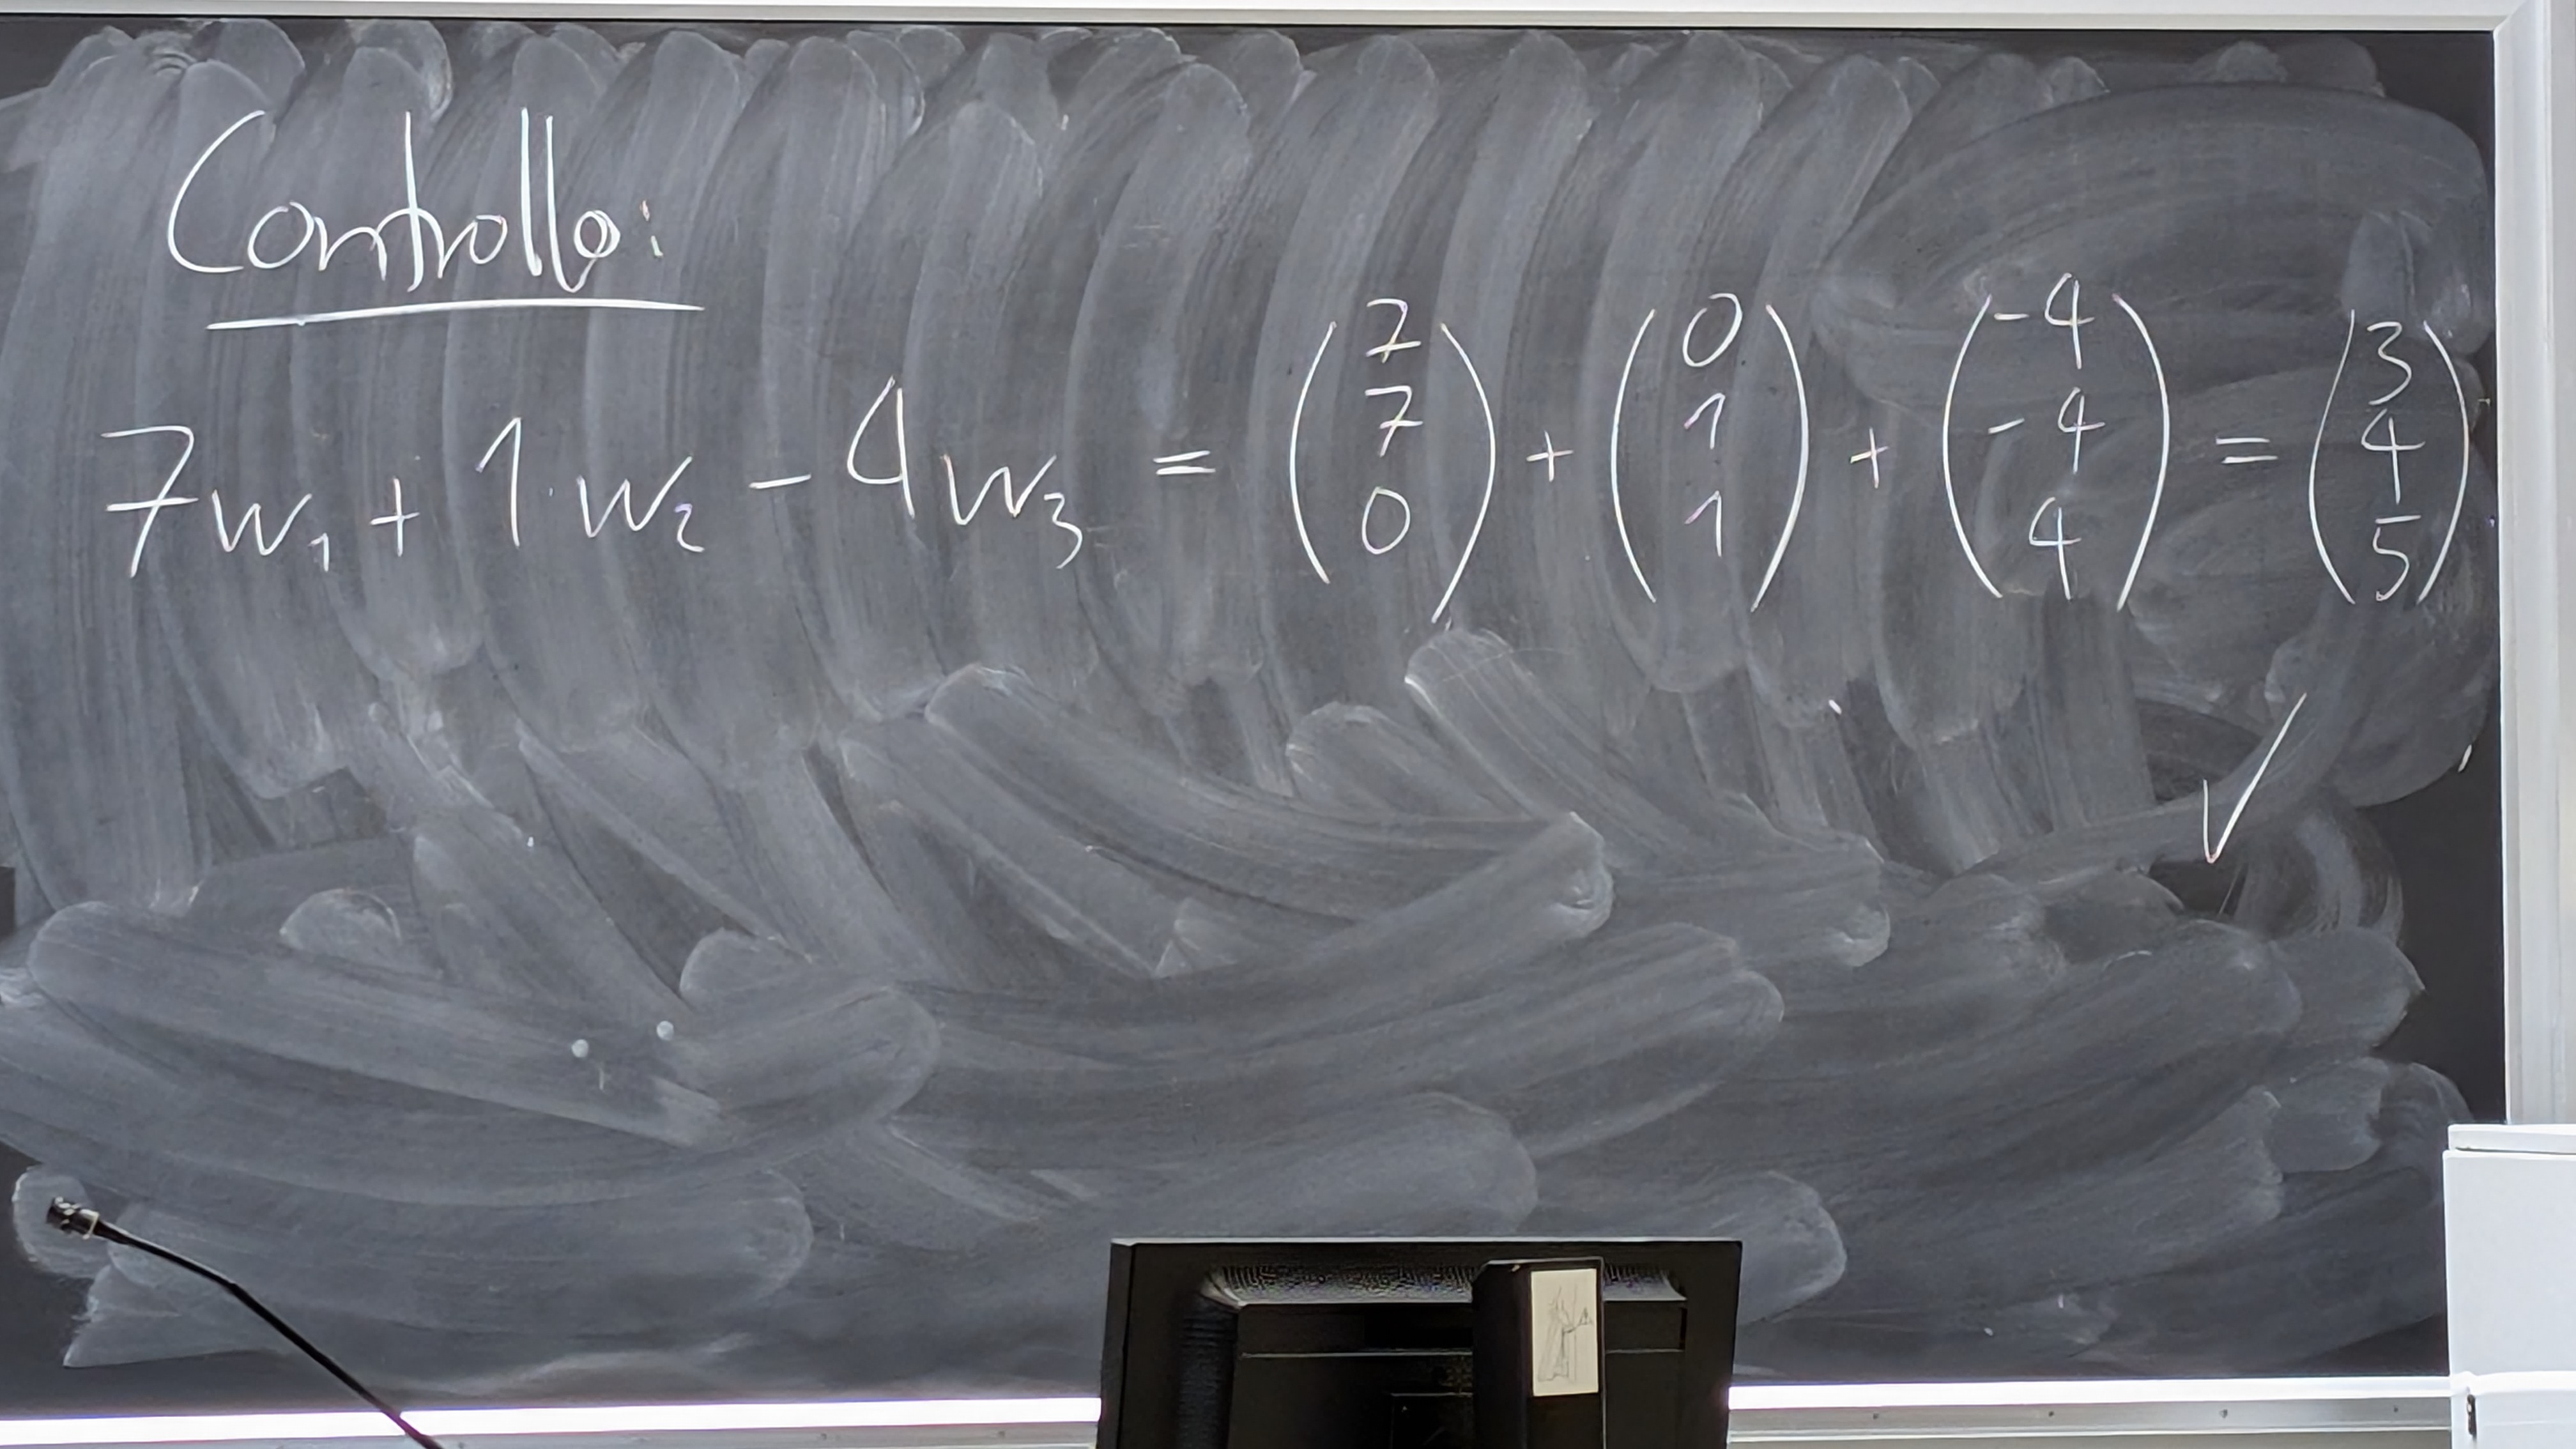 Controllo:
7w₁ + 1·w₂ - 4w₃ = (7 7 0) + (0 1 1) + (-4 -4 4) = (3 4 5)
✓